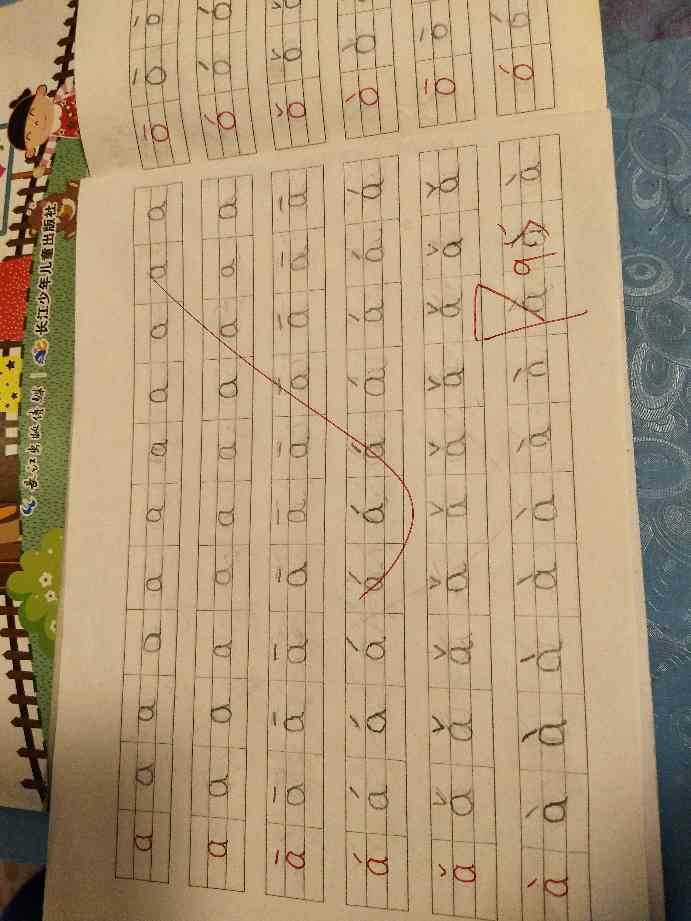 长江出版传媒 | 长江少年儿童出版社
ō ō ō
ó ó ó
ǒ ǒ ǒ
ò ò
ō ō
ó ó
a a a a a a a a a a a
a a a a a a a a a a a
ā ā ā ā ā ā ā ā ā ā ā
á á á á á á á á á á á
ǎ ǎ ǎ ǎ ǎ ǎ ǎ ǎ ǎ ǎ ǎ
à à à à à à à à à à à
95